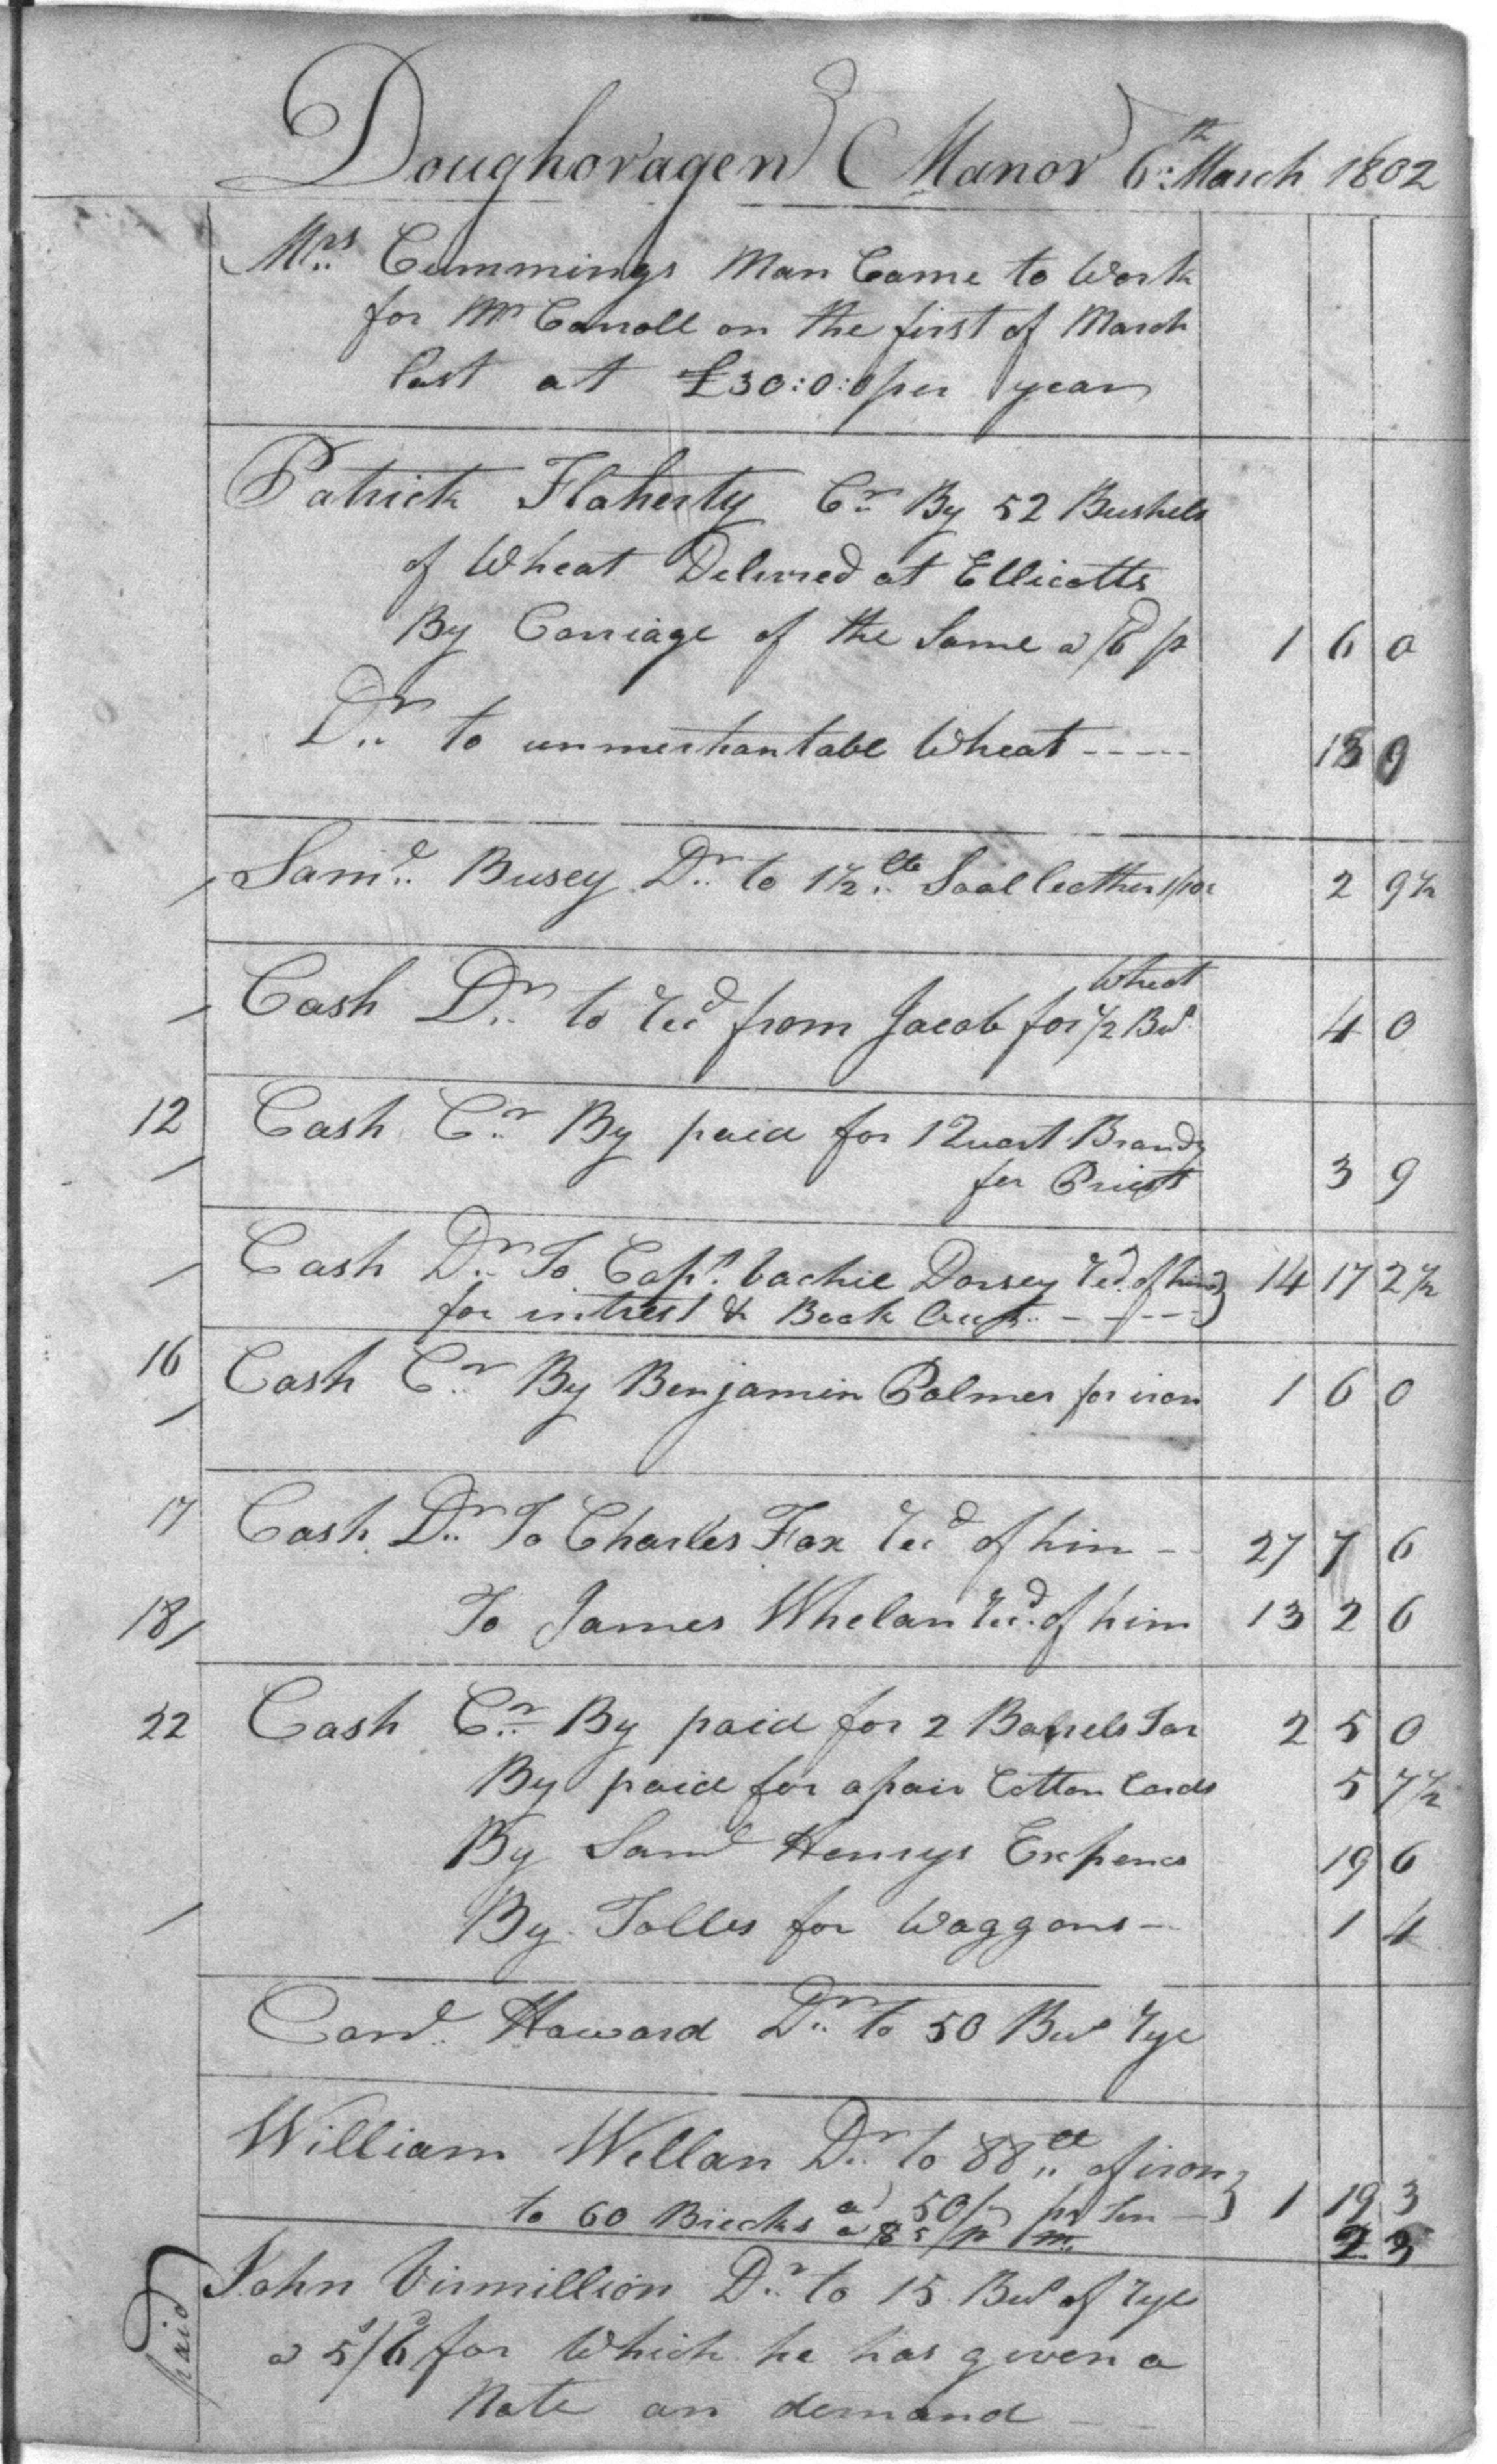 Doughoragen Manor 6th March 1802
Mrs Cummings Man Came to Work
for Mr Carroll on the first of March
last at £30:0:0 per year
Patrick Flaherty Cr By 52 Bushels
of Wheat Delivred at Ellicotts
By Carriage of the Same a /6d p 1 6 0
Dr to unmerhantable Wheat ----- 13 9
Saml Busey Dr to 1½ lb Soal leather 1/10½ 2 9½
Wheat
Cash Dr to recd from Jacob for ½ Bus 4 0
12 Cash Cr By paid for 1 Quart Brandy
for Priests 3 9
Cash Dr To Capt Vachie Dorsey recd of him 14 17 2½
for intrest & Book Acct
16 Cash Cr By Benjamin Palmer for iron 1 6 0
17 Cash Dr To Charles Fox recd of him - 27 7 6
18 To James Whelan recd of him 13 2 6
22 Cash Cr By paid for 2 Barrels Tar 2 5 0
By paid for a pair Cotton Cards 5 7½
By Saml Henrys Expences 19 6
By Tolles for Waggons - 1 4
Howard Dr to 50 Bus rye
William Wellan Dr to 88 lb of iron
a 50/ pr Ton 1 19 3
to 60 Bricks a 5/ p m 2 3
John Virmillion Dr to 15 Bus of rye
a 5s/6d for Which he has given a
Note on demand
paid